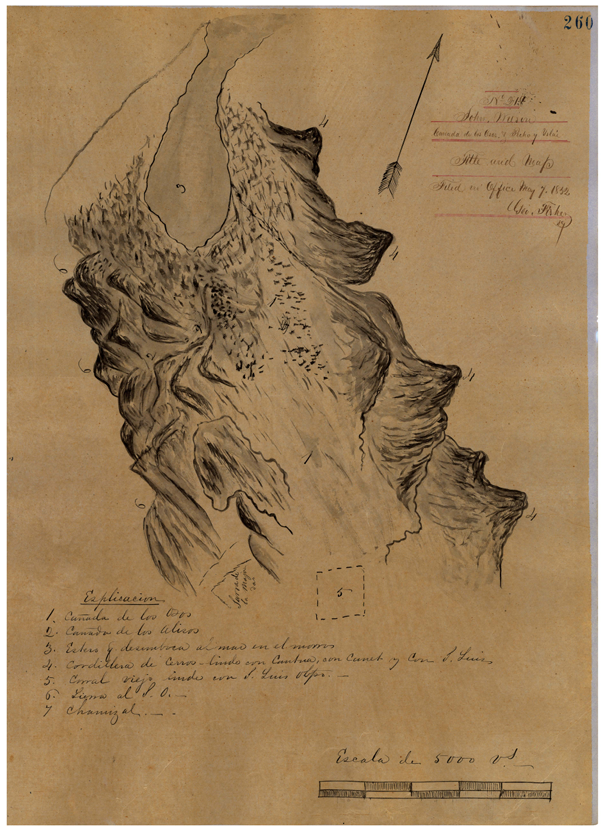 260
John Wilson
Cañada de los Osos, & Pecho y Islai
Title and Map
Filed in Office May 7. 1852
Geo. Fisher
3
4
4
6
6
2
7
1
4
1
4
6
5
Explicacion
1. Cañada de los Osos
2. Cañada de los Alisos
3. Estero y desemboca al mar en el morro
4. Cordillera de Cerros linda con Cantua, con Canet y Con S. Luis
5. Corral viejo linda con S. Luis Obpo.
6. Signa al S. O.
7 Chamizal.
Escala de 5000 vs